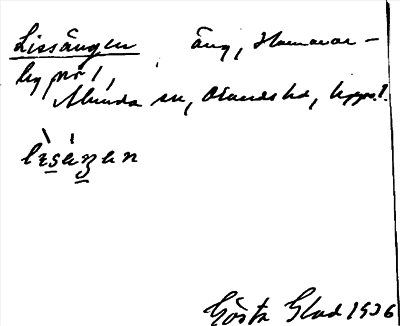 Lissängen äng, Hammar-
by nr 1,
Almunda sn, Olandshd, Uppl.
lisäŋen
Gösta Glad 1936